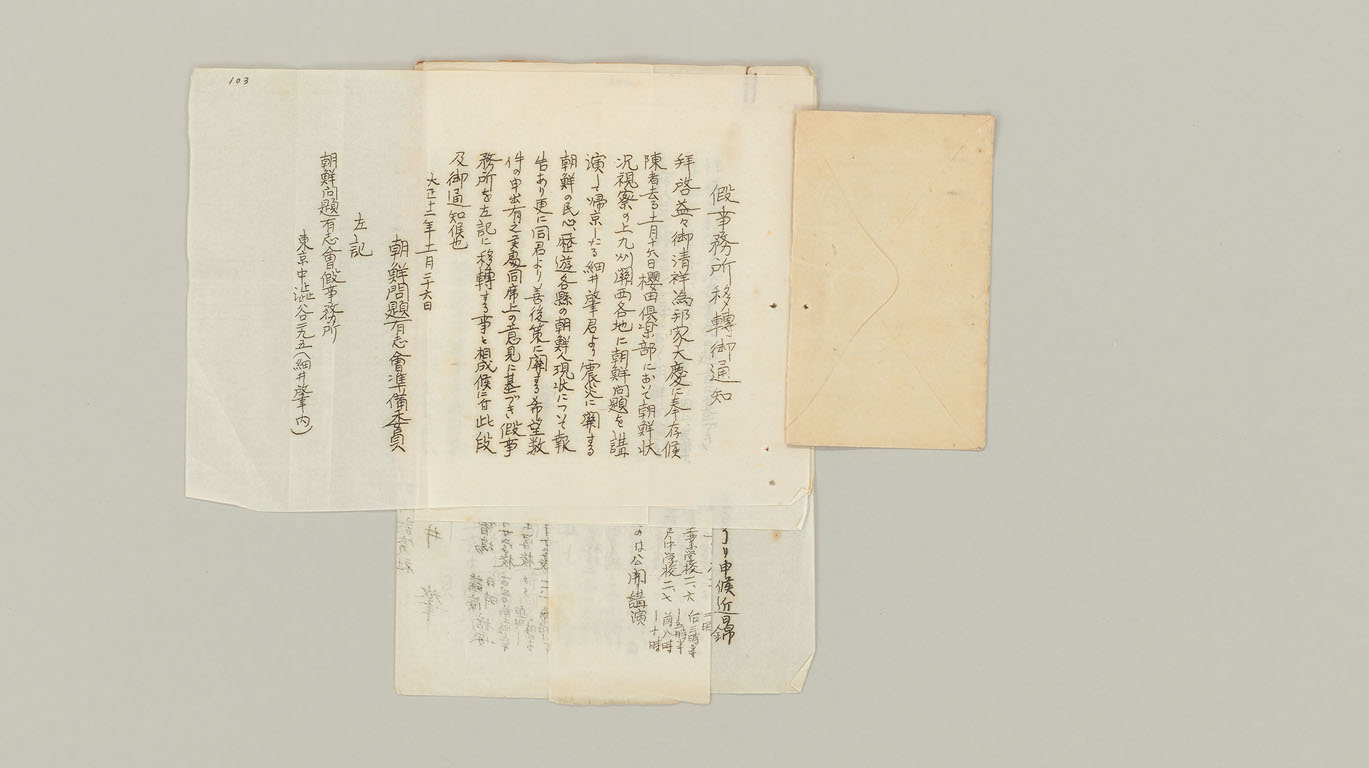 103
假事務所移轉御通知
拝啓益々御清祥為邦家大慶に奉存候
陳者去る十一月十六日櫻田倶楽部において朝鮮状
况視察の上九州関西各地に朝鮮問題を講
演して帰京したる細井肇君より震災に関する
朝鮮の民心、歴遊各縣の朝鮮人現状について報
告あり更に同君より善後策に関する希望数
件の申出有之候處同席上の意見に基づき假事
務所を左記に移轉する事と相成候に付此段
及御通知候也
大正十二年十一月二十六日
朝鮮問題有志會準備委員
左記
朝鮮問題有志會假事務所
東京中澁谷六九五(細井肇内)
り申候近日帰
工業学校二、六
中学校二、七
后三時半
前八時
十時
のは公開講演
井
肇